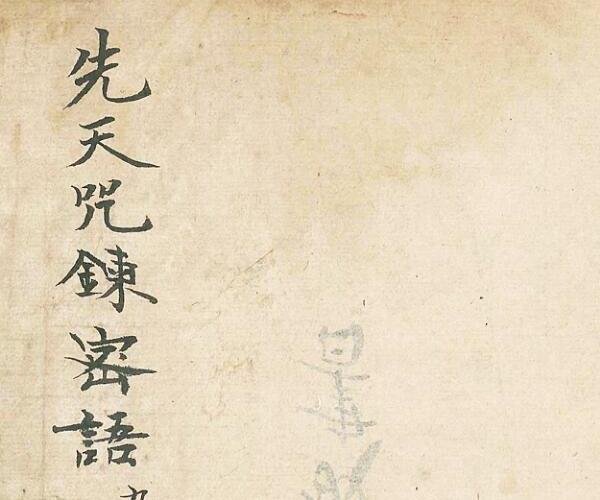 先天咒鍊密語